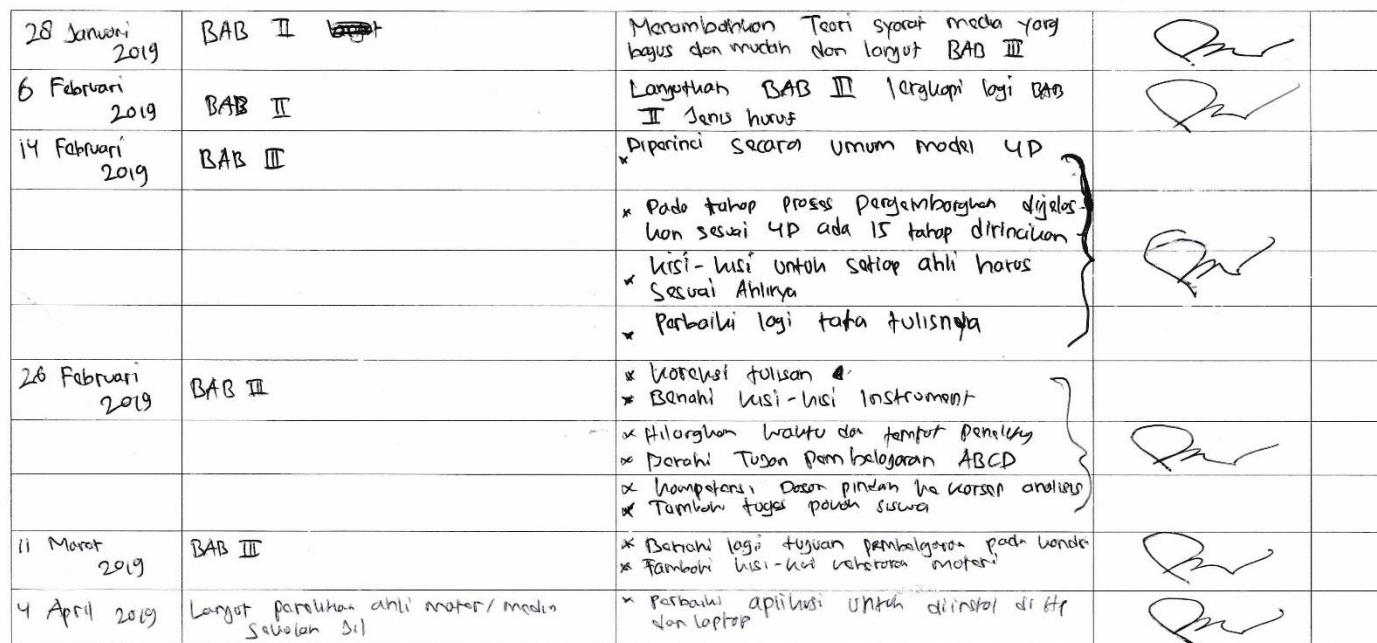 28 Januari
2019
BAB II
Menambahkan Teori syarat media yang
bagus dan mudah dan lanjut BAB III
6 Februari
2019
BAB II
Lanjutkan BAB III lengkapi lagi BAB
II Jenis huruf
14 Februari
2019
BAB III
* Diperinci secara umum model 4D
* Pada tahap proses pengembangkan dijelas-
kan sesuai 4D ada 15 tahap dirincikan
* kisi-kisi untuk setiap ahli harus
Sesuai Ahlinya
* Perbaiki lagi tata tulisnya
26 Februari
2019
BAB III
* Koreksi tulisan
* Benahi kisi-kisi Instrument
* Hilangkan waktu dan tempat
* Benahi Tujuan Pembelajaran ABCD
* Kompetensi Dasar pindah ke konsep analisis
* Tambah tugas pokok siswa
11 Maret
2019
BAB III
* Benahi lagi tujuan pembelajaran pada
* Tambahi kisi-kisi materi
4 April 2019
Lanjut penelitian ahli materi/media
* Perbaiki aplikasi untuk diinstal di Hp
dan laptop